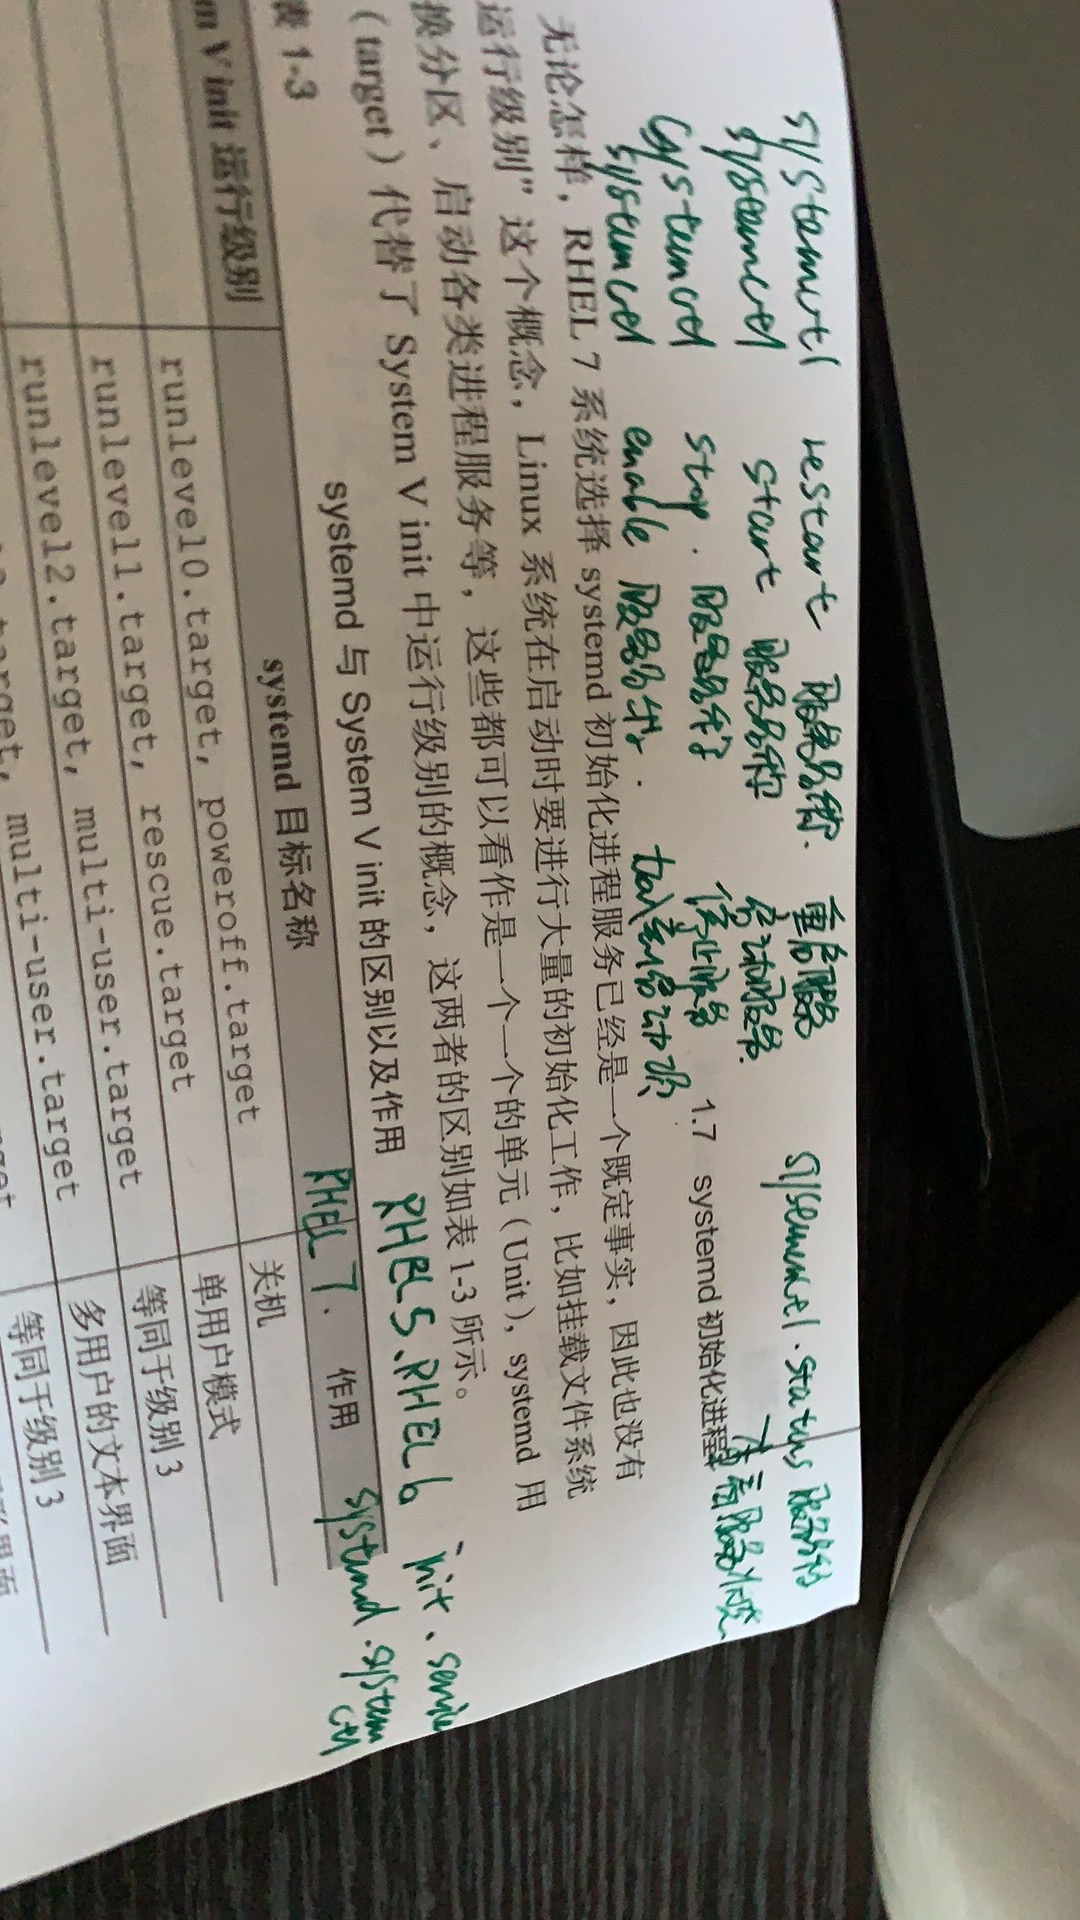 systemctl restart 服务名称. 重启服务 systemctl. status 服务名称
systemctl start 服务名称 启动服务. 查看服务状态
systemctl stop. 服务名称 停止服务
1.7 systemd 初始化进程
systemctl enable 服务名称.
无论怎样，RHEL 7 系统选择 systemd 初始化进程服务已经是一个既定事实，因此也没有
运行级别”这个概念，Linux 系统在启动时要进行大量的初始化工作，比如挂载文件系统
换分区、启动各类进程服务等，这些都可以看作是一个一个的单元（Unit），systemd 用
（target）代替了 System V init 中运行级别的概念，这两者的区别如表 1-3 所示。
RHEL5、RHEL6 init、service
表 1-3 systemd 与 System V init 的区别以及作用
RHEL 7. systemd.systemctl
m V init 运行级别 systemd 目标名称 作用
runlevel0.target, poweroff.target 关机
runlevel1.target, rescue.target 单用户模式
runlevel2.target, multi-user.target 等同于级别 3
multi-user.target 多用户的文本界面
等同于级别 3